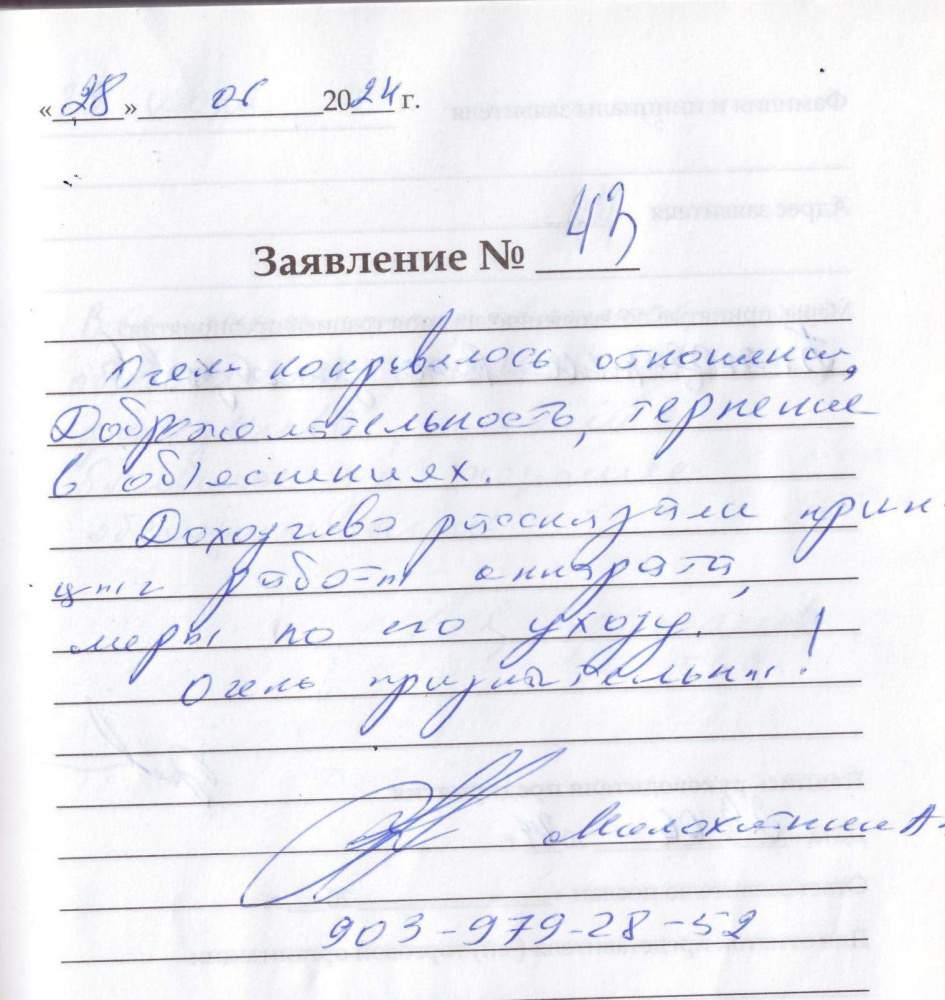 «28» 06 2024 г.
Заявление № 43
Очень понравилось отношение,
Доброжелательность, терпение
в объяснениях.
Доходчиво рассказали прин-
цип работы аппарата,
меры по его уходу.
Очень признательны!
А.
903-979-28-52